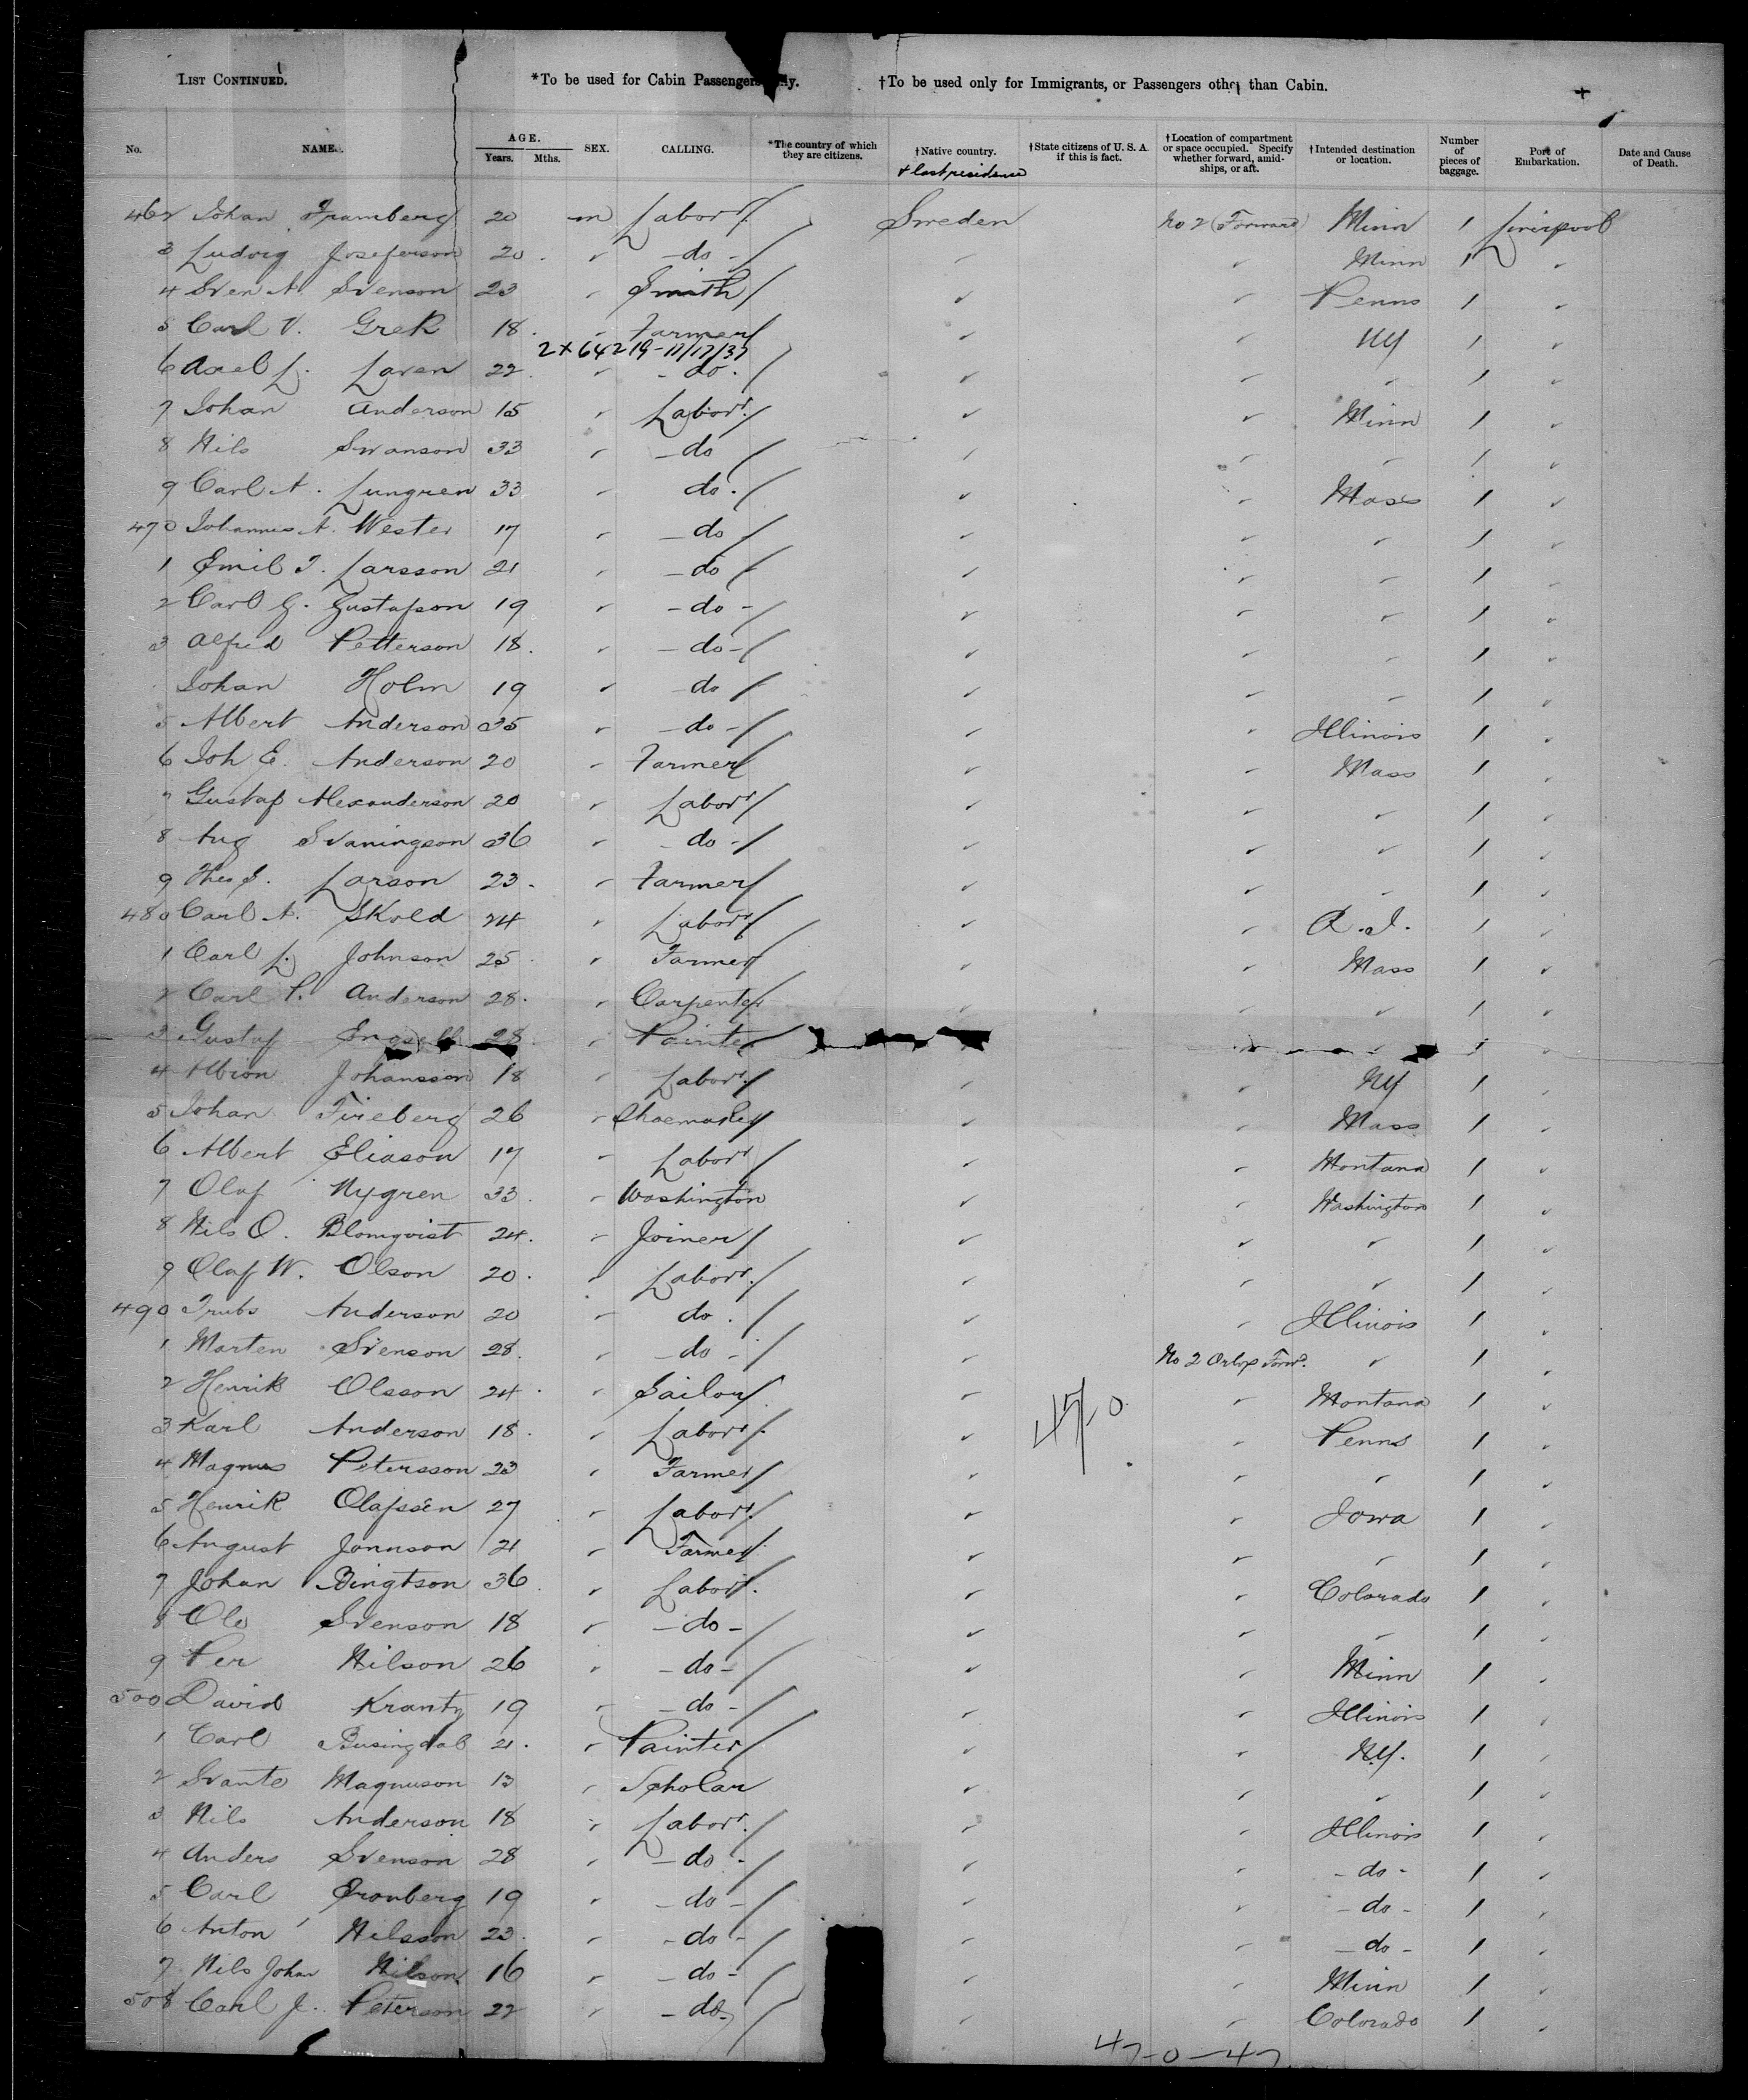 LIST CONTINUED. *To be used for Cabin Passengers †To be used only for Immigrants, or Passengers other than Cabin.
No. NAME. AGE. Years. Mths. SEX. CALLING. *The country of which they are citizens. †Native country. & last residence †State citizens of U. S. A. if this is fact. †Location of compartment or space occupied. Specify whether forward, amidships, or aft. †Intended destination or location. Number of pieces of baggage. Port of Embarkation. Date and Cause of Death.
462 Johan Framberg 20 m Labor Sweden No 2 (Forward) Minn 1 Liverpool
3 Ludvig Joseferson 20 " do " " Minn 1 "
4 Sven A. Svenson 23 " Smith " " Penns 1 "
5 Carl V. Grek 18 " Farmer " " NY 1 "
2 X 64219-11/17/37
6 Axel L. Laven 22 " do " " " 1 "
7 Johan Anderson 15 " Labor " " Minn 1 "
8 Nils Swanson 33 " do " " " 1 "
9 Carl A. Lungren 33 " do " " Mass 1 "
470 Johannes A. Wester 17 " do " " " 1 "
1 Emil T. Larsson 21 " do " " " 1 "
2 Carl G. Gustafson 19 " do " " " 1 "
3 Alfred Petterson 18 " do " " " 1 "
Johan Holm 19 " do " " " 1 "
5 Albert Anderson 35 " do " " Illinois 1 "
6 Joh E. Anderson 20 " Farmer " " Mass 1 "
7 Gustaf Alexanderson 20 " Labor " " " 1 "
8 Aug Svaningson 36 " do " " " 1 "
9 Theo S. Larson 23 " Farmer " " " 1 "
480 Carl A. Skold 24 " Labor " " R.I. 1 "
1 Carl L. Johnson 25 " Farmer " " Mass 1 "
2 Carl P. Anderson 28 " Carpenter " " " 1 "
3 Gustaf 28 " Painter " " " 1 "
4 Albion Johansson 18 " Labor " " NY 1 "
5 Johan Fireberg 26 " Shoemaker " " Mass 1 "
6 Albert Eliason 17 " Labor " " Montana 1 "
7 Olaf Nygren 33 " Washington " " Washington 1 "
8 Nils O. Blomqvist 24 " Joiner " " " 1 "
9 Olaf W. Olson 20 " Labor " " " 1 "
490 Truls Anderson 20 " do " " Illinois 1 "
1 Marten Svenson 28 " do " No 2 Orlop Forw. " 1 "
2 Henrik Olsson 24 " Sailor " " Montana 1 "
3 Karl Anderson 18 " Labor " " Penns 1 "
4 Magnus Petersson 23 " Farmer " " " 1 "
5 Henrik Olafssen 27 " Labor " " Iowa 1 "
6 August Jonnson 21 " Farmer " " " 1 "
7 Johan Bingtson 36 " Labor " " Colorado 1 "
8 Ole Svenson 18 " do " " " 1 "
9 Per Nilson 26 " do " " Minn 1 "
500 David Krantz 19 " do " " Illinois 1 "
1 Carl Busingdal 21 " Painter " " NY. 1 "
2 Svante Magnuson 13 " Scholar " " " 1 "
3 Nils Anderson 18 " Labor " " Illinois 1 "
4 Anders Svenson 28 " do " " do 1 "
5 Carl Cronberg 19 " do " " do 1 "
6 Anton Nilsson 23 " do " " do 1 "
7 Nils Johan Nilson 16 " do " " Minn 1 "
508 Carl J. Peterson 22 " do " " Colorado 1 "
47-0-47